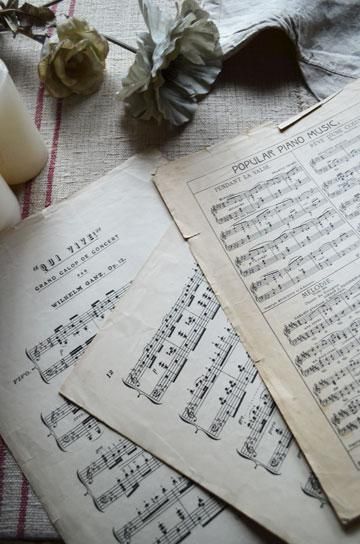 "QUI VIVE!"
GRAND GALOP DE CONCERT
PAR
WILHELM GANZ, Op. 12.
PIANO.
12
POPULAR PIANO MUSIC.
PENDANT LA VALSE
MÉLODIE